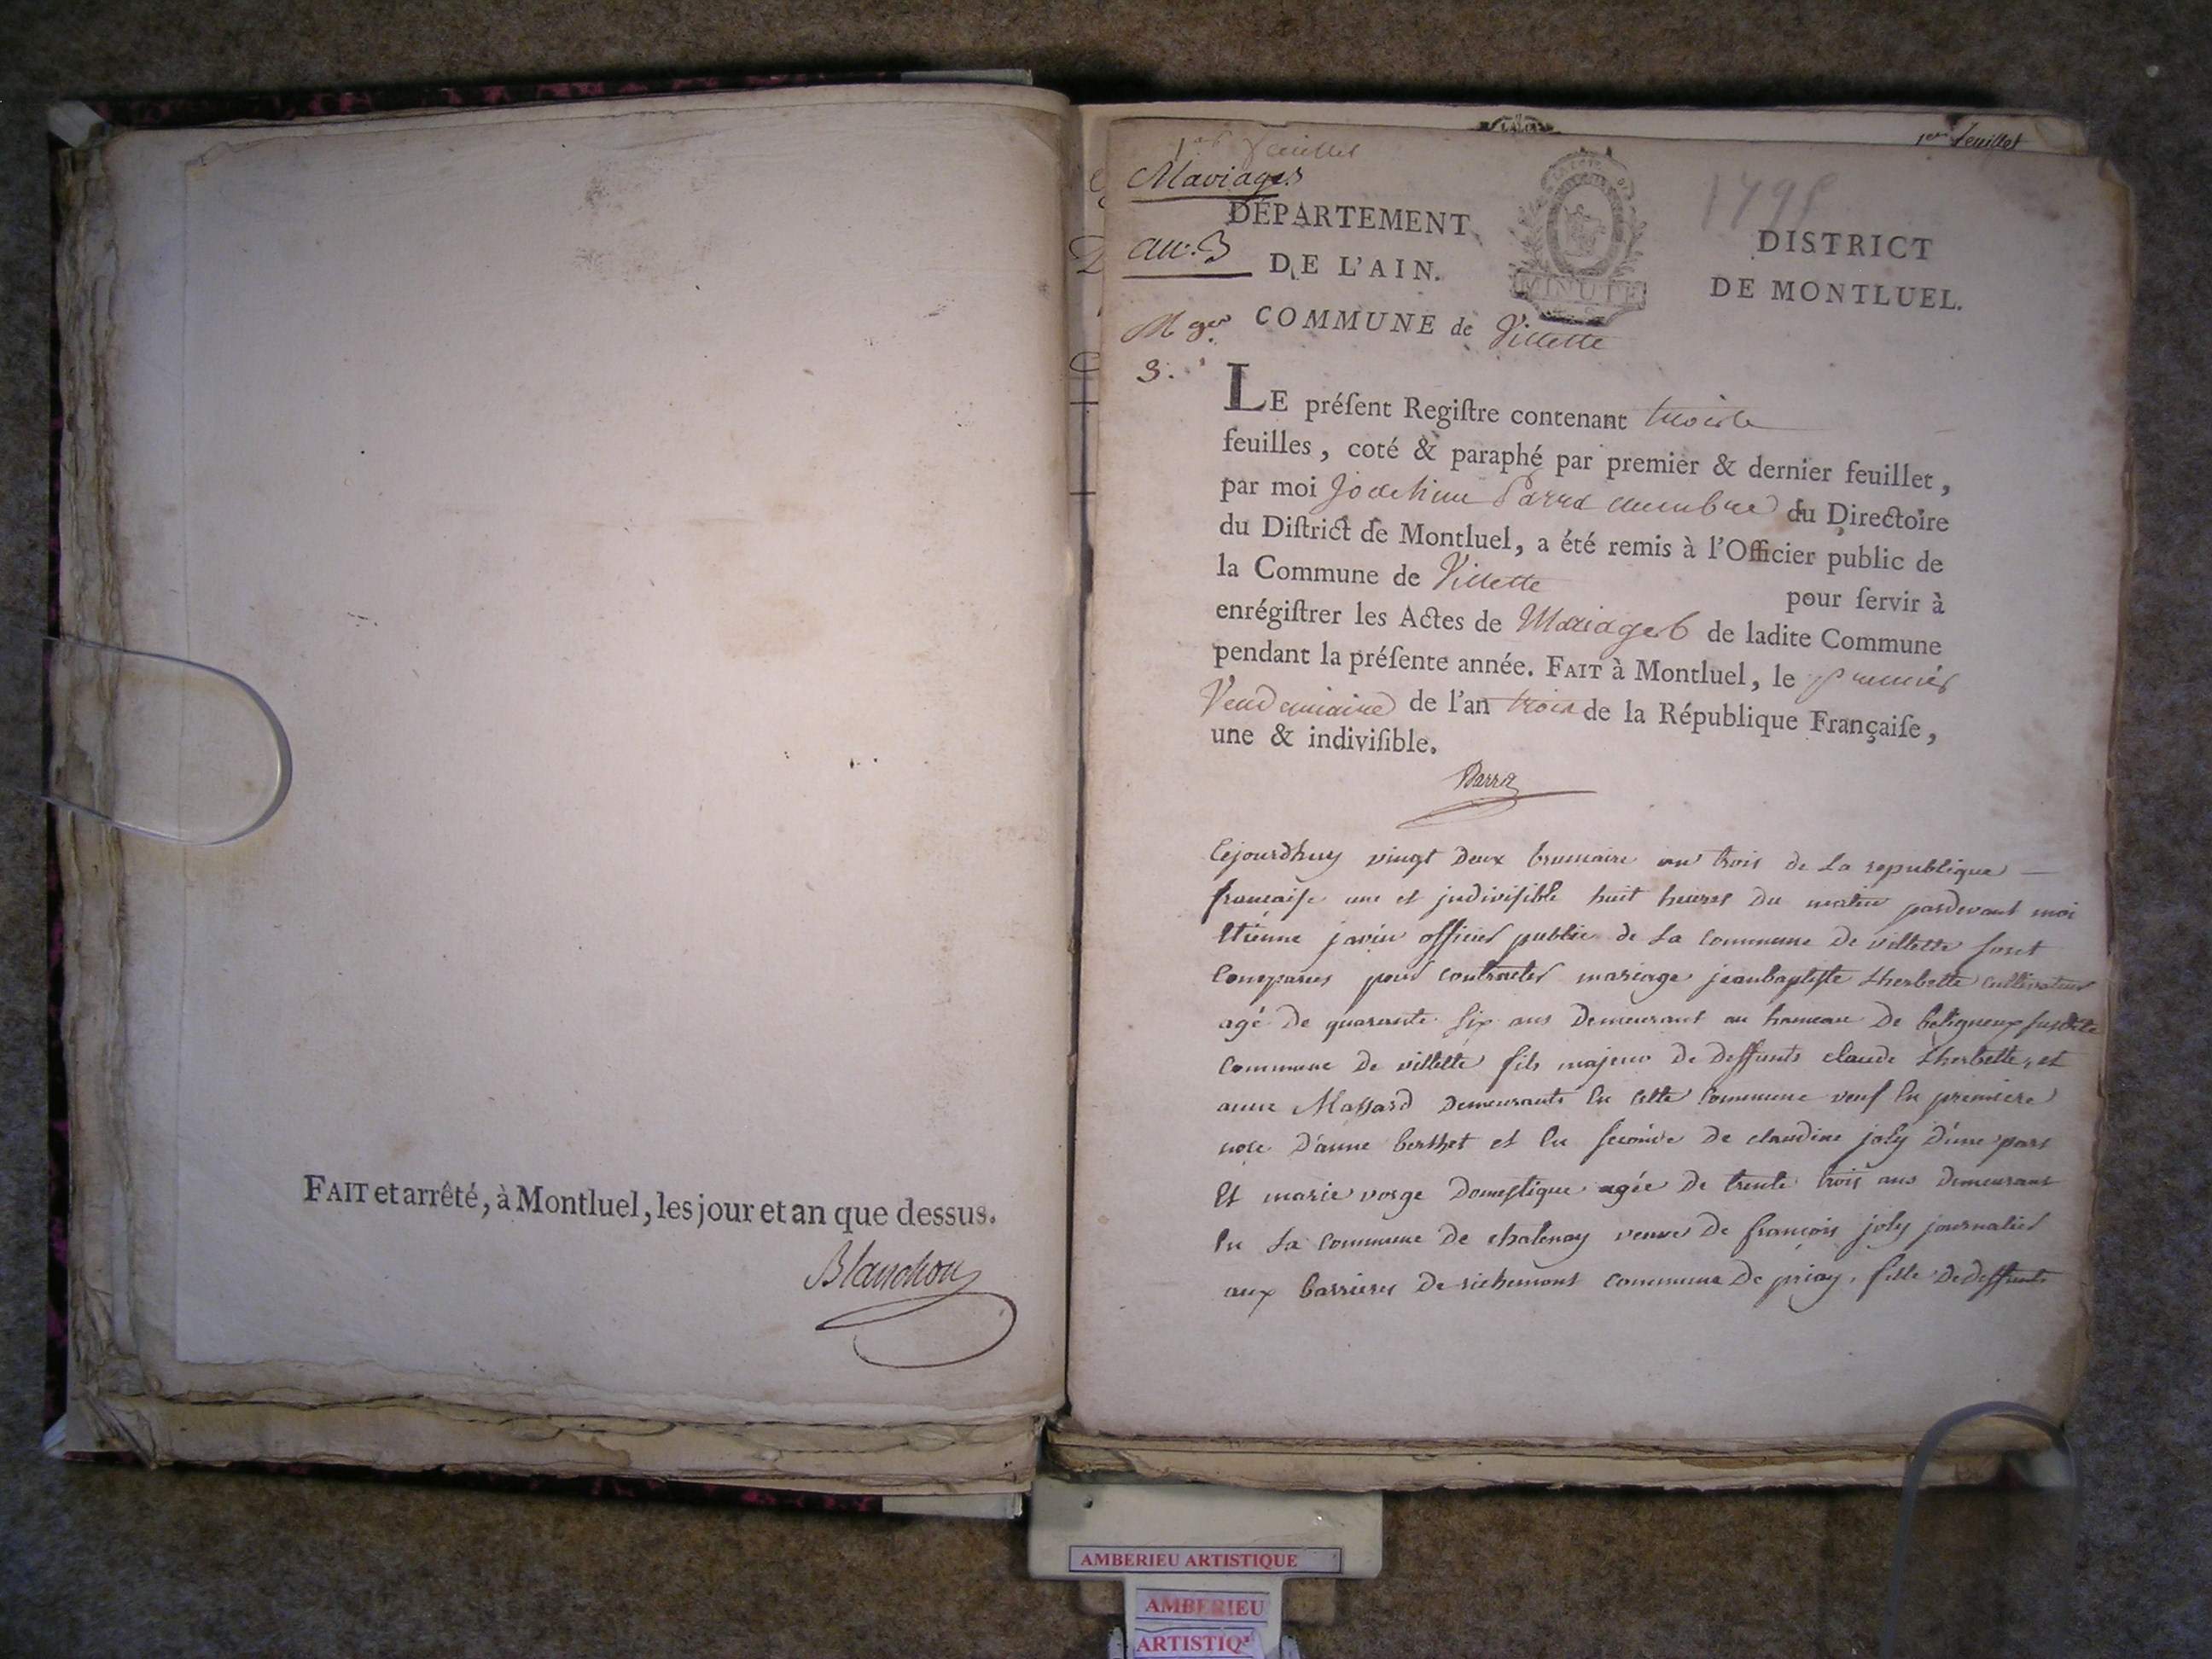 FAIT et arrêté, à Montluel, les jour et an que dessus.
Blanchon
1er feuillet
1er feuillet
Mariages
1795
DÉPARTEMENT
DE L'AIN.
an. 3
MINUTE
DISTRICT
DE MONTLUEL.
M ges
3.
COMMUNE de Villette
LE préſent Regiſtre contenant trois
feuilles, coté & paraphé par premier & dernier feuillet,
par moi Joachim Parra membre du Directoire
du Diſtrict de Montluel, a été remis à l'Officier public de
la Commune de Villette pour ſervir à
enrégiſtrer les Actes de Mariages de ladite Commune
pendant la préſente année. FAIT à Montluel, le premier
Vendemiaire de l'an trois de la République Françaiſe,
une & indiviſible.
Parra
Cejourdhuy vingt deux brumaire an trois de la republique
francaise une et jndivisible huit heures du matin pardevant moi
Etienne javin officier public de la commune de villette sont
Comparus pour contracter mariage jeanbaptiste Lherbette cultivateur
agé de quarante six ans demeurant au hameau de beligneux susdite
commune de villette fils majeur de deffunts claude Lherbette, et
anne Massard demeurants en cette commune veuf en premiere
noce d'anne berthet et en seconde de claudine joly d'une part
Et marie vorge domestique agée de trente trois ans demeurant
en la commune de chatenay veuve de françois joly journalier
aux barrieres de richemont commune de priay, fille de deffunts
AMBERIEU ARTISTIQUE
AMBERIEU
ARTISTIQ